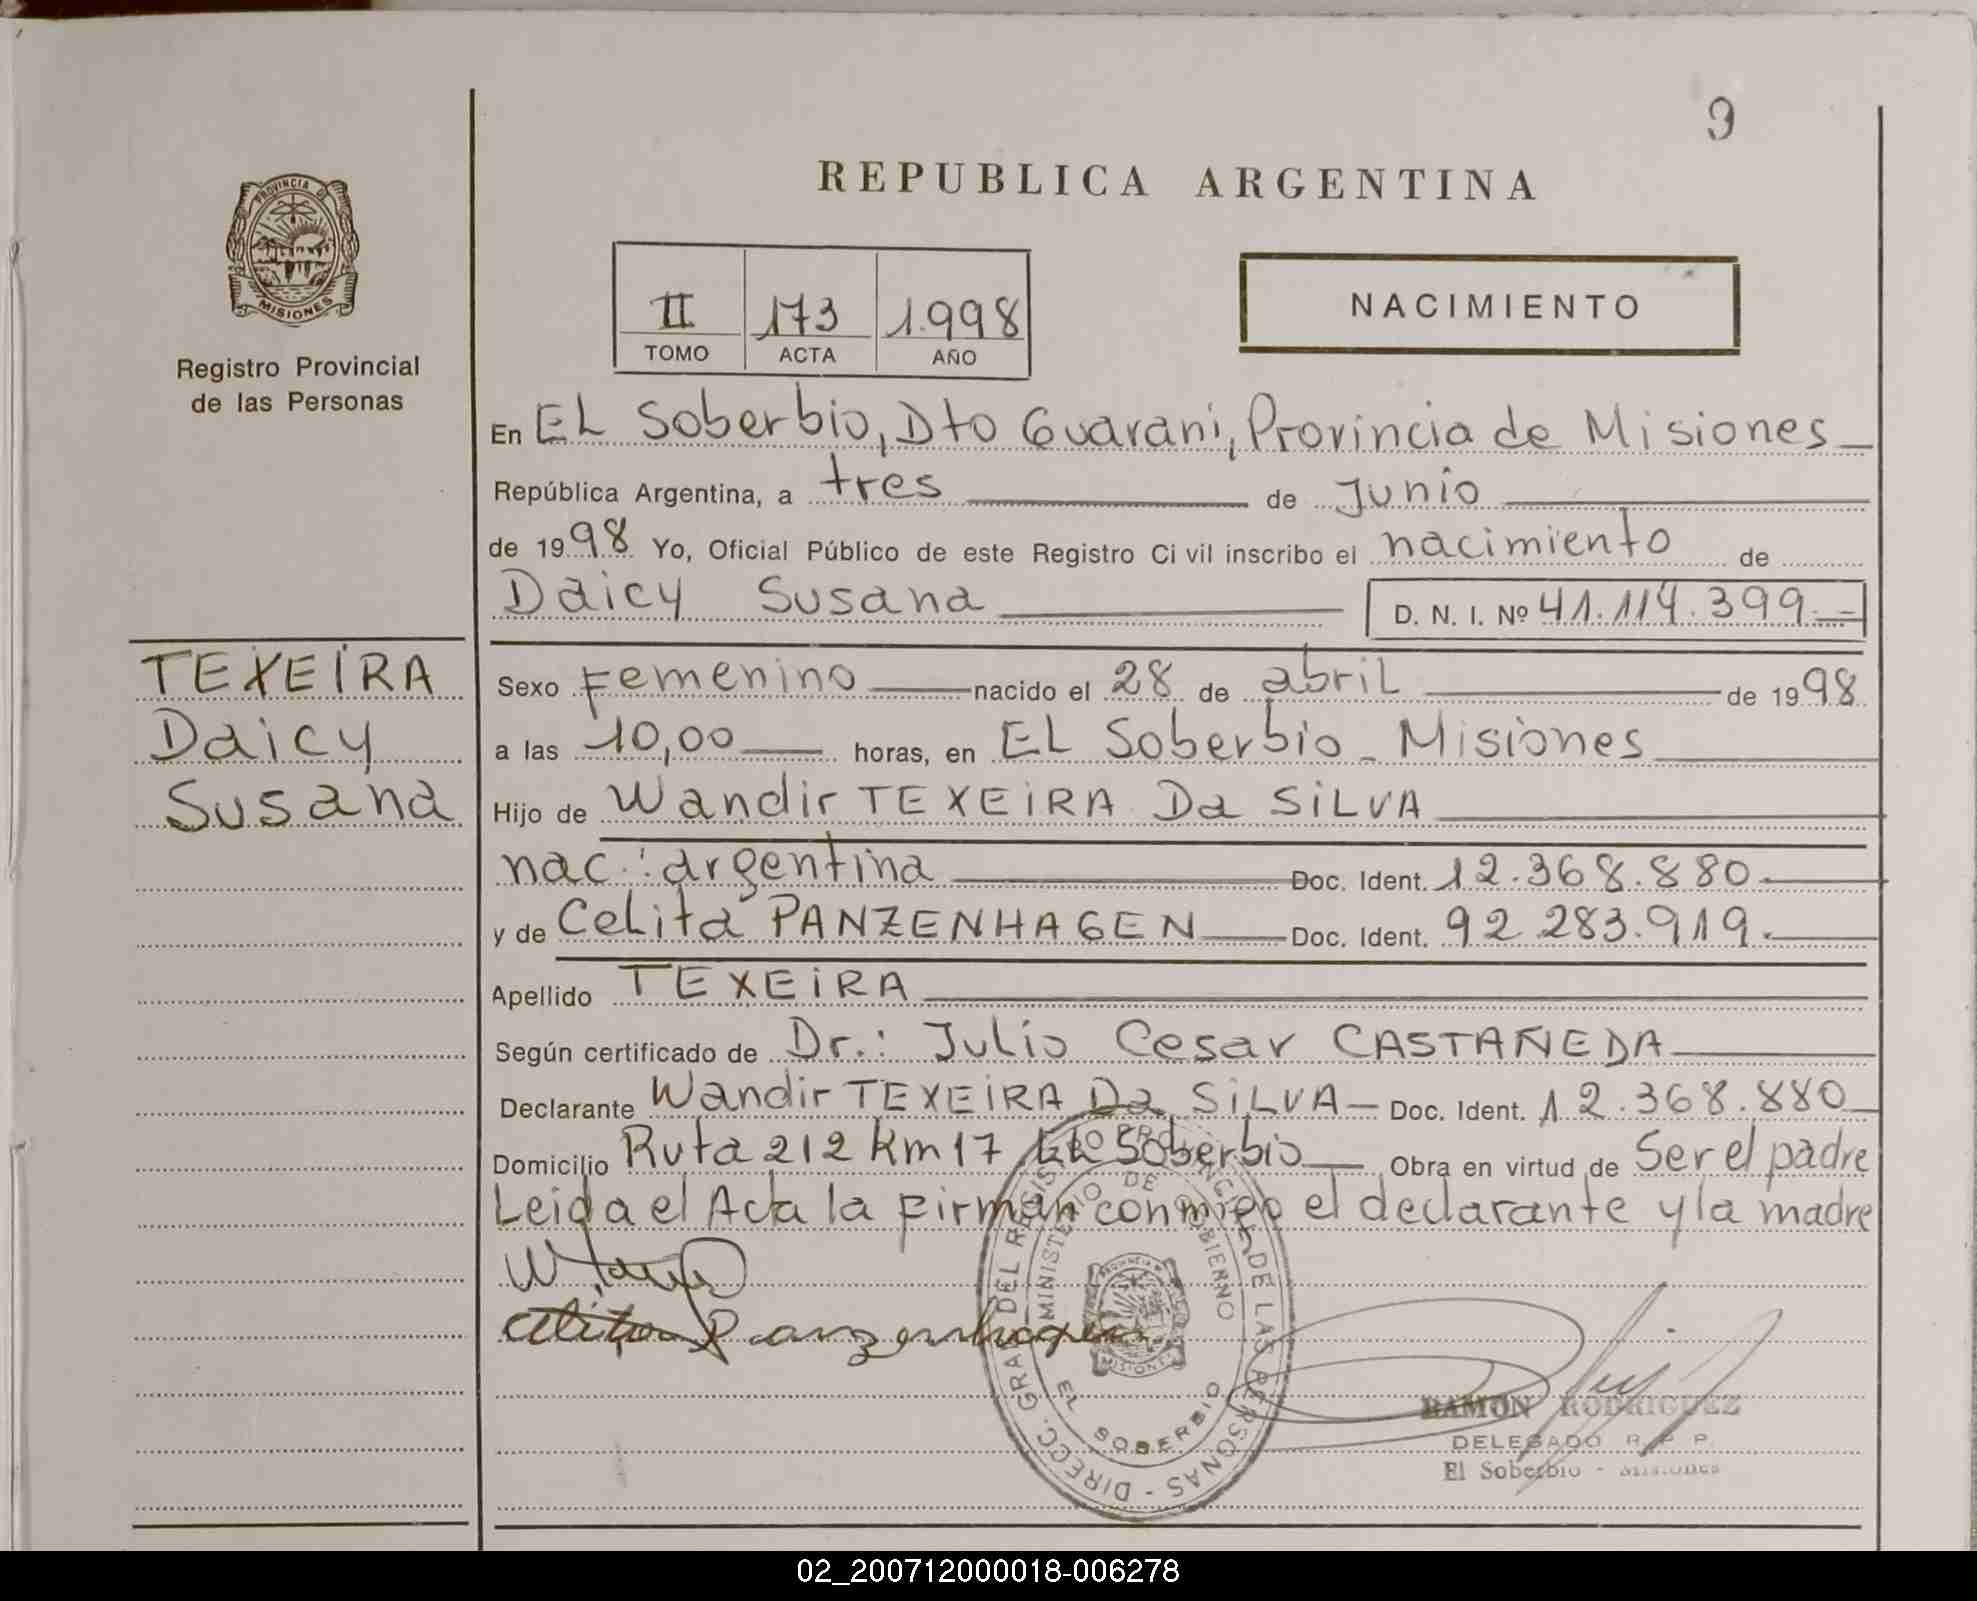 9
REPUBLICA ARGENTINA
PROVINCIA DE
MISIONES
Registro Provincial
de las Personas
II 173 1.998
TOMO ACTA AÑO
NACIMIENTO
En EL Soberbio, Dto Guarani, Provincia de Misiones
República Argentina, a tres de Junio
de 1998 Yo, Oficial Público de este Registro Civil inscribo el nacimiento de
Daicy Susana D. N. I. Nº 41.114.399.=
TEXEIRA
Daicy
Susana
Sexo Femenino nacido el 28 de abril de 1998
a las 10,00 horas, en EL Soberbio - Misiones
Hijo de Wandir TEXEIRA Da SILVA
nac.: argentina Doc. Ident. 12.368.880.
y de Celita PANZENHAGEN Doc. Ident. 92.283.919.
Apellido TEXEIRA
Según certificado de Dr.: Julio Cesar CASTAÑEDA
Declarante Wandir TEXEIRA Da SILVA - Doc. Ident. 12.368.880
Domicilio Ruta 212 Km 17 EL Soberbio Obra en virtud de Ser el padre
Leida el Acta la firman conmigo el declarante y la madre
Celita Panzenhagen
DIRECC. GRAL DEL REGISTRO PROVINCIAL DE LAS PERSONAS -
MINISTERIO DE GOBIERNO
EL SOBERBIO
MISIONES
RAMON RODRIGUEZ
DELEGADO R. P. P.
El Soberbio - Misiones
02_200712000018-006278